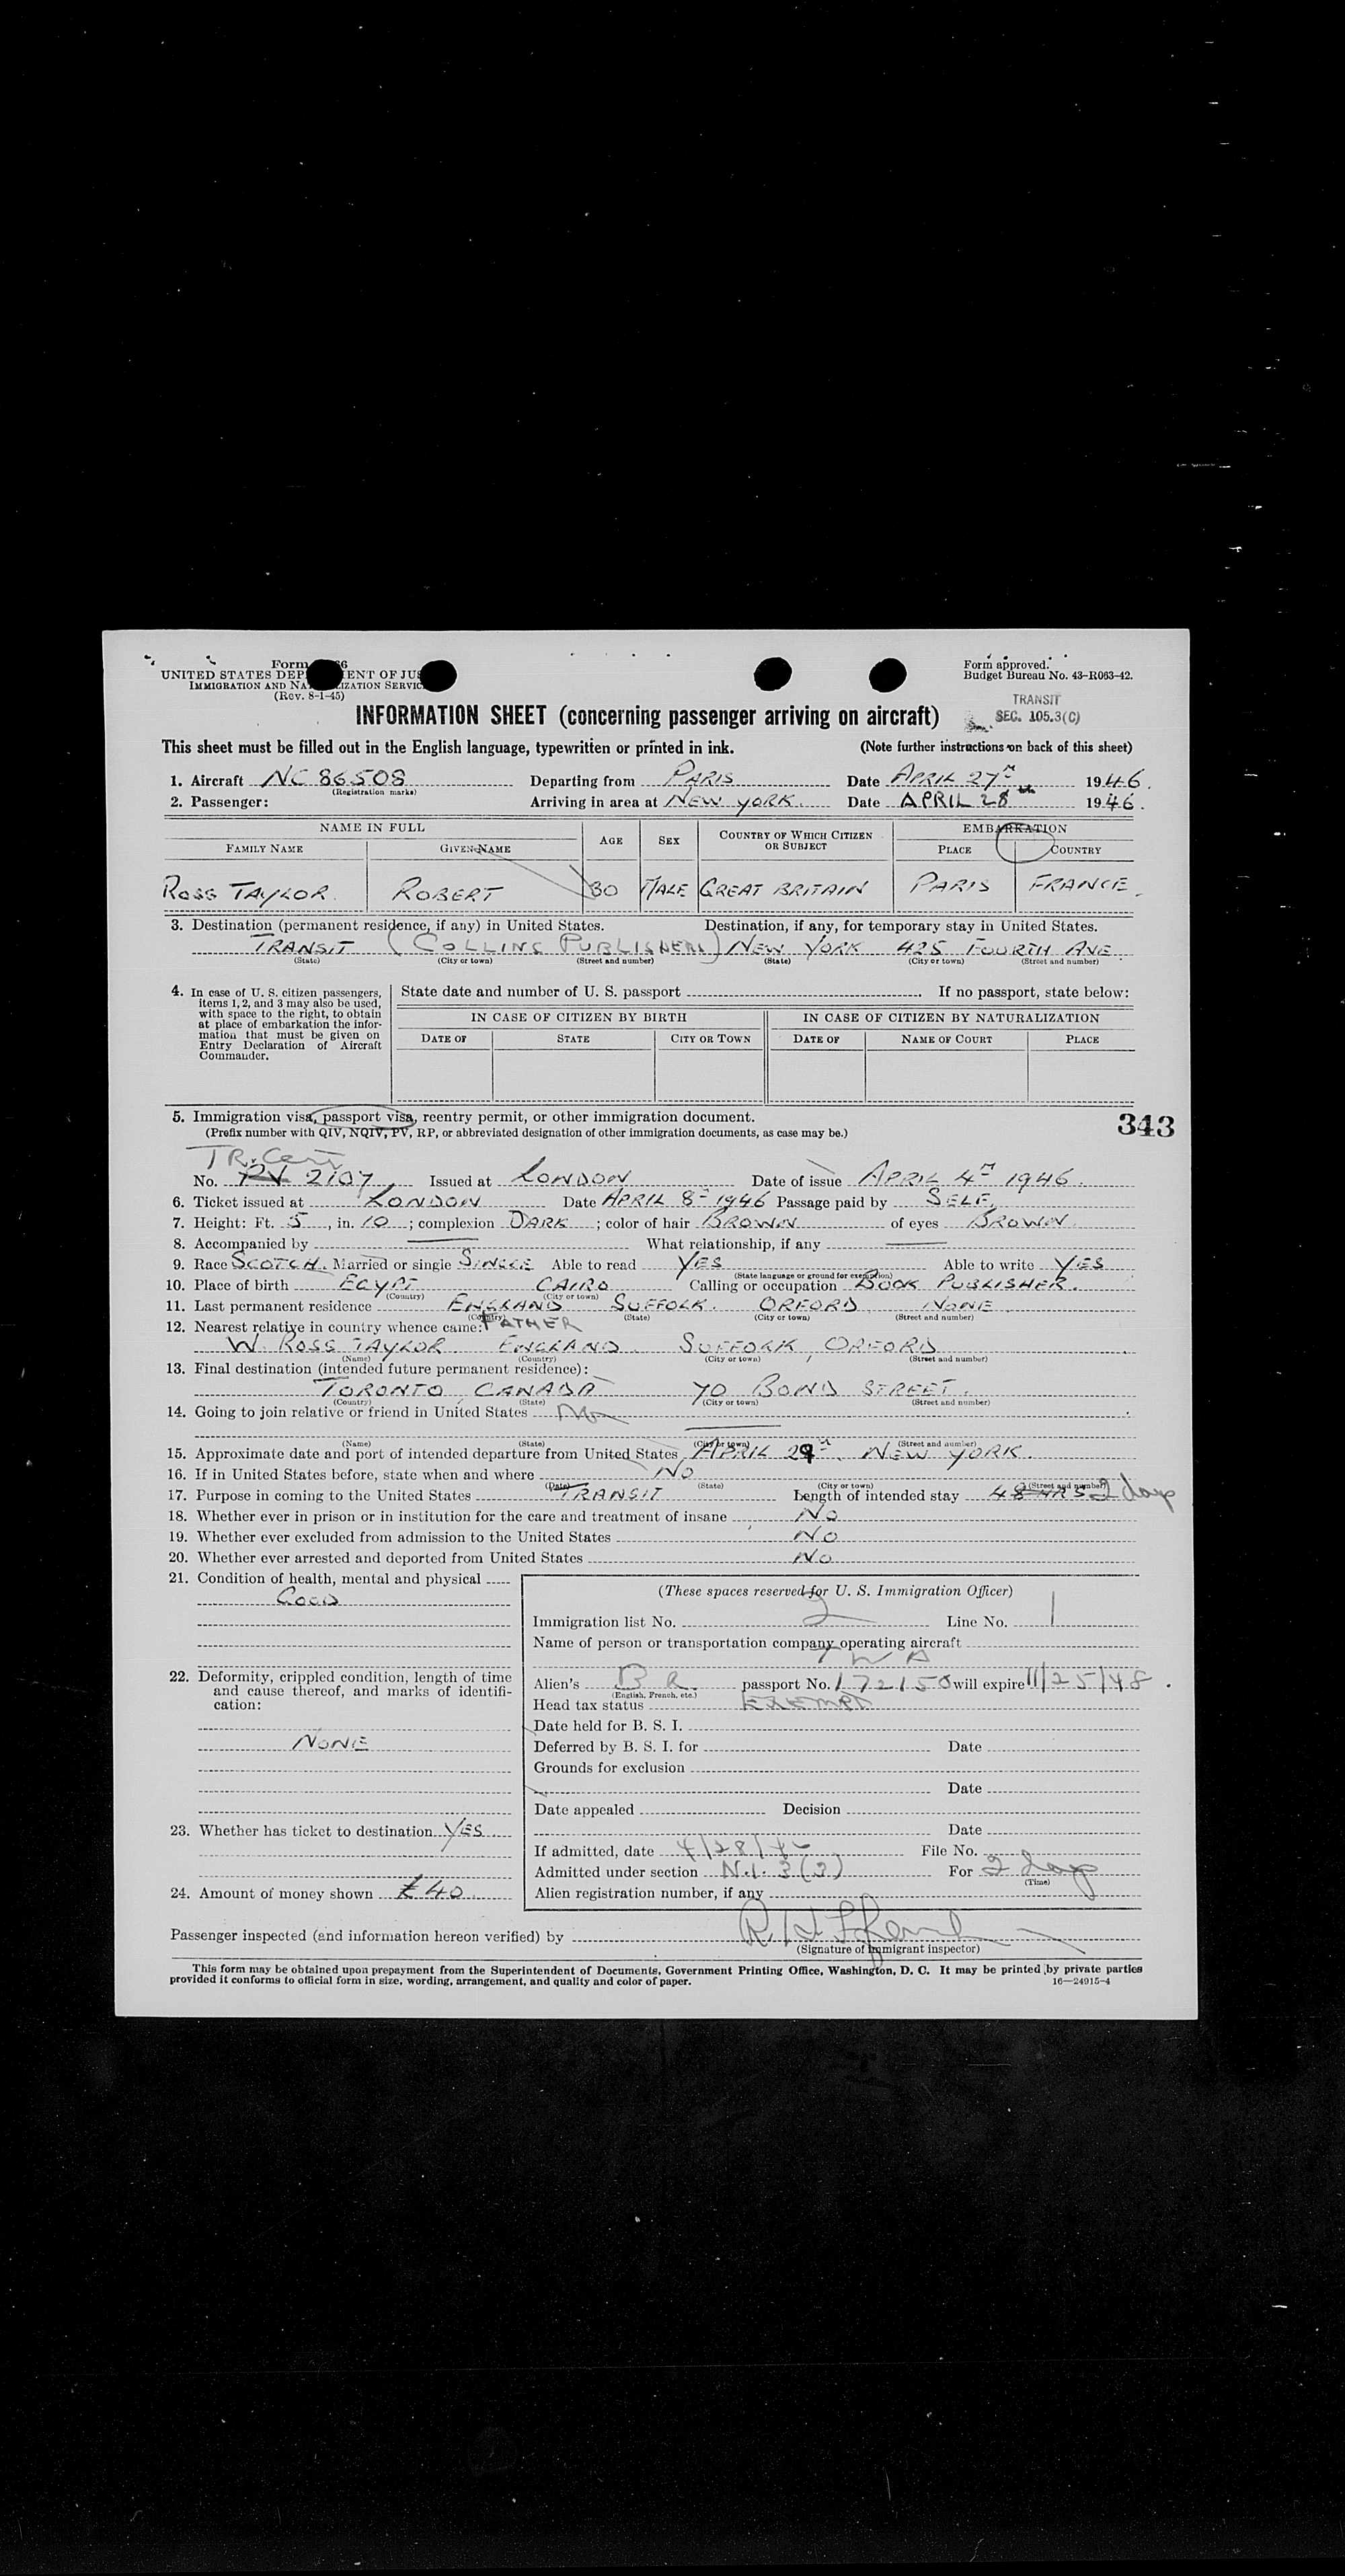 Form 66
Form approved.
UNITED STATES DEP ENT OF JUS
Budget Bureau No. 43-R063-42.
IMMIGRATION AND NA IZATION SERVIC
(Rev. 8-1-45)
TRANSIT
SEC. 105.3(C)
INFORMATION SHEET (concerning passenger arriving on aircraft)
This sheet must be filled out in the English language, typewritten or printed in ink. (Note further instructions on back of this sheet)
1. Aircraft NC 86508 Departing from PARIS Date APRIL 27TH 1946.
(Registration marks)
2. Passenger: Arriving in area at NEW YORK. Date APRIL 28th 1946.
NAME IN FULL AGE SEX COUNTRY OF WHICH CITIZEN OR SUBJECT EMBARKATION
FAMILY NAME GIVEN NAME PLACE COUNTRY
ROSS TAYLOR ROBERT 30 MALE GREAT BRITAIN PARIS FRANCE.
3. Destination (permanent residence, if any) in United States. Destination, if any, for temporary stay in United States.
TRANSIT (COLLINS PUBLISHERS) NEW YORK 425 FOURTH AVE.
(State) (City or town) (Street and number) (State) (City or town) (Street and number)
4. In case of U. S. citizen passengers, items 1, 2, and 3 may also be used, with space to the right, to obtain at place of embarkation the information that must be given on Entry Declaration of Aircraft Commander.
State date and number of U. S. passport If no passport, state below:
IN CASE OF CITIZEN BY BIRTH IN CASE OF CITIZEN BY NATURALIZATION
DATE OF STATE CITY OR TOWN DATE OF NAME OF COURT PLACE
5. Immigration visa, passport visa, reentry permit, or other immigration document.
343
(Prefix number with QIV, NQIV, PV, RP, or abbreviated designation of other immigration documents, as case may be.)
TR. Cert
No. PV 2107 Issued at LONDON Date of issue APRIL 4TH 1946.
6. Ticket issued at LONDON Date APRIL 8TH 1946 Passage paid by SELF.
7. Height: Ft. 5, in. 10; complexion DARK; color of hair BROWN of eyes BROWN
8. Accompanied by What relationship, if any
9. Race SCOTCH. Married or single SINGLE Able to read YES Able to write YES
(State language or ground for exemption)
10. Place of birth EGYPT CAIRO Calling or occupation BOOK PUBLISHER.
(Country) (City or town)
11. Last permanent residence ENGLAND SUFFOLK. ORFORD NONE
(Country) (State) (City or town) (Street and number)
12. Nearest relative in country whence came: FATHER
W. ROSS TAYLOR ENGLAND SUFFOLK, ORFORD
(Name) (Country) (City or town) (Street and number)
13. Final destination (intended future permanent residence):
TORONTO, CANADA 70 BOND STREET.
(Country) (State) (City or town) (Street and number)
14. Going to join relative or friend in United States No
(Name) (State) (City or town) (Street and number)
15. Approximate date and port of intended departure from United States APRIL 29TH, NEW YORK.
16. If in United States before, state when and where NO
(Date) (State) (City or town) (Street and number)
17. Purpose in coming to the United States TRANSIT Length of intended stay 48 HRS 2 days
18. Whether ever in prison or in institution for the care and treatment of insane NO
19. Whether ever excluded from admission to the United States NO
20. Whether ever arrested and deported from United States NO
21. Condition of health, mental and physical
GOOD
22. Deformity, crippled condition, length of time and cause thereof, and marks of identification:
NONE
23. Whether has ticket to destination YES
24. Amount of money shown £40
(These spaces reserved for U. S. Immigration Officer)
Immigration list No. 2 Line No. 1
Name of person or transportation company operating aircraft
TWA
Alien's BR passport No. 172150 will expire 11/25/48.
(English, French, etc.)
Head tax status EXEMPT
Date held for B. S. I.
Deferred by B. S. I. for Date
Grounds for exclusion
Date
Date appealed Decision
Date
If admitted, date 4/28/46 File No.
Admitted under section N.I. 3(3) For 2 days
(Time)
Alien registration number, if any
Passenger inspected (and information hereon verified) by
(Signature of immigrant inspector)
This form may be obtained upon prepayment from the Superintendent of Documents, Government Printing Office, Washington, D. C. It may be printed by private parties
provided it conforms to official form in size, wording, arrangement, and quality and color of paper.
16—24915-4